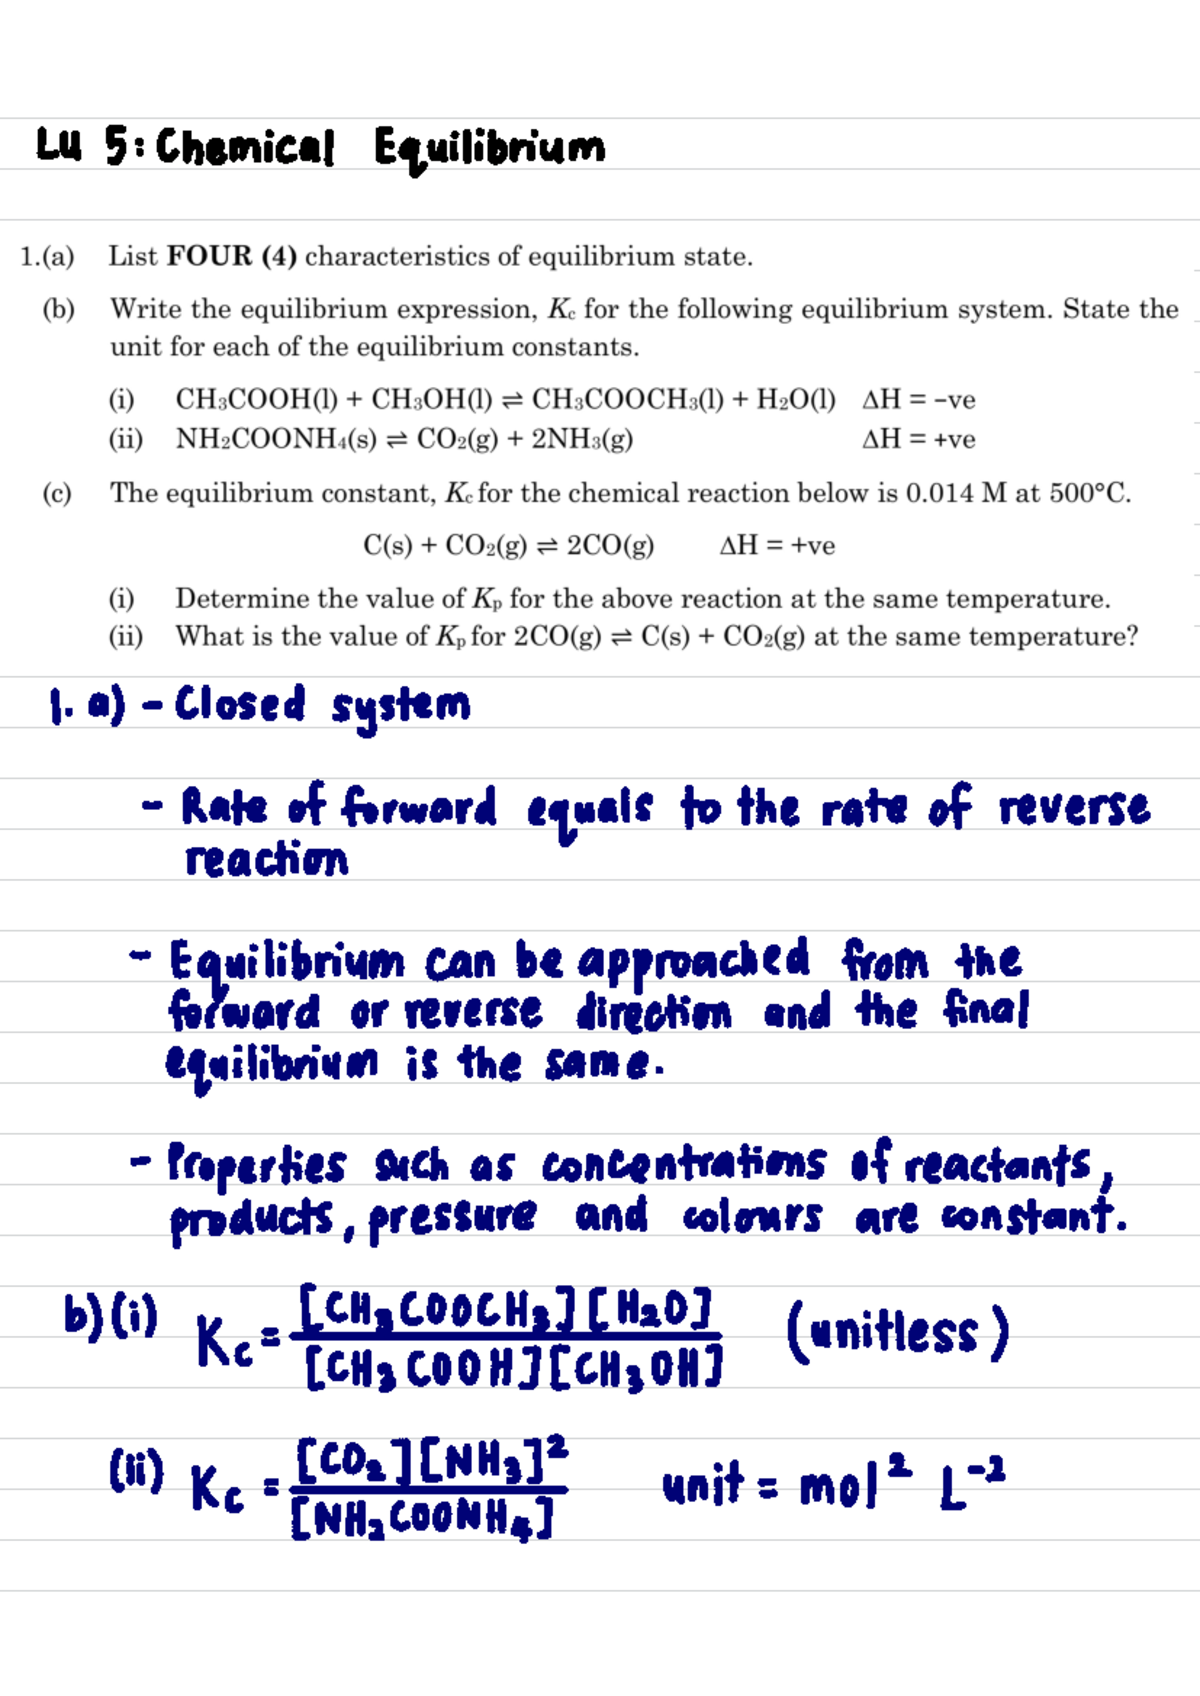 Lu 5: Chemical Equilibrium
1.(a) List FOUR (4) characteristics of equilibrium state.
(b) Write the equilibrium expression, Kc for the following equilibrium system. State the
unit for each of the equilibrium constants.
(i) CH₃COOH(l) + CH₃OH(l) ⇌ CH₃COOCH₃(l) + H₂O(l) ΔH = –ve
(ii) NH₂COONH₄(s) ⇌ CO₂(g) + 2NH₃(g) ΔH = +ve
(c) The equilibrium constant, Kc for the chemical reaction below is 0.014 M at 500°C.
C(s) + CO₂(g) ⇌ 2CO(g) ΔH = +ve
(i) Determine the value of Kp for the above reaction at the same temperature.
(ii) What is the value of Kp for 2CO(g) ⇌ C(s) + CO₂(g) at the same temperature?
1. a) - Closed system
- Rate of forward equals to the rate of reverse
reaction
- Equilibrium can be approached from the
forward or reverse direction and the final
equilibrium is the same.
- Properties such as concentrations of reactants,
products, pressure and colours are constant.
b) (i) Kc = [CH₃COOCH₃][H₂O] / [CH₃COOH][CH₃OH] (unitless)
(ii) Kc = [CO₂][NH₃]² / [NH₂COONH₄] unit = mol² L⁻²